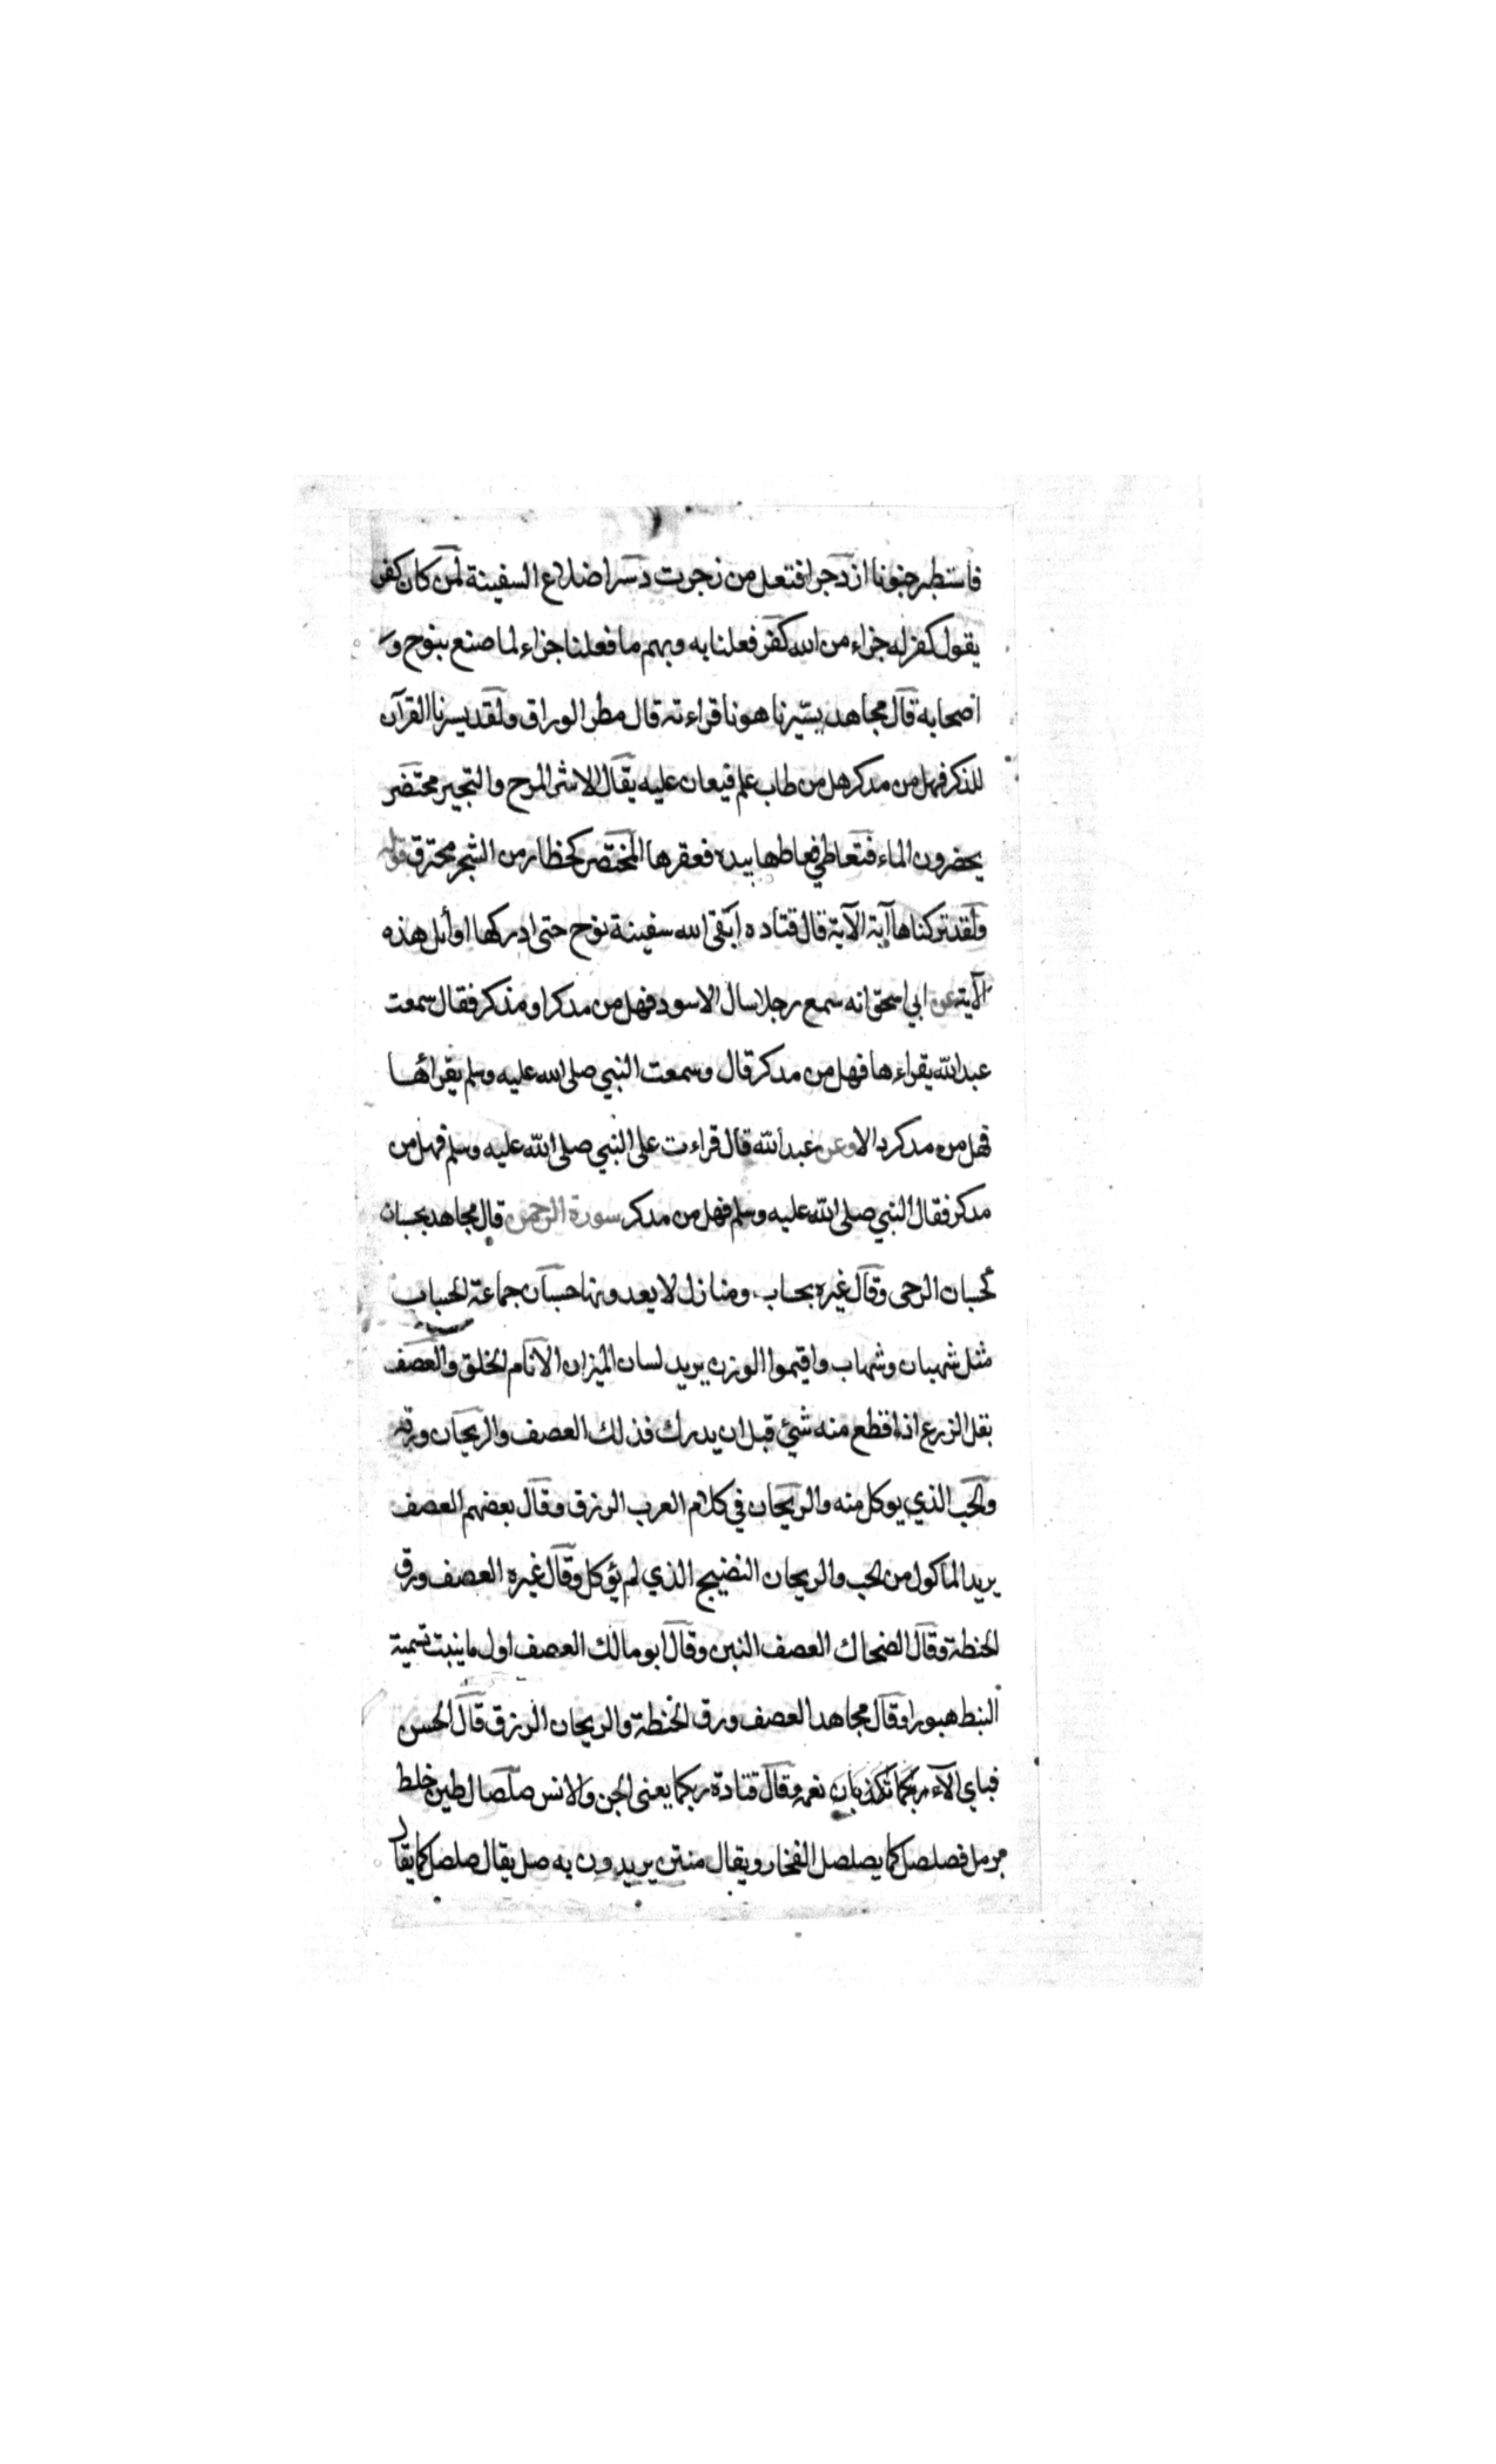 فاستطير جنونا ازدجر افتعل من زجرت دسر اضلاع السفينة لمن كان كفر
يقول كفر له جزاء من الله كفر فعلنا به وبهم ما فعلنا جزاء لما صنع بنوح و
اصحابه قال مجاهد يسّرنا هونا قراءته قال مطر الوراق ولقد يسرنا القرآن
للذكر فهل من مدكر هل من طاب علم فيعان عليه يقال الاشر المرح والتجبر محتضر
يحضرون الماء فتعاطي فعاطها بيده فعقرها المحتضر كحظار من الشجر محترق قوله
ولقد تركناها آية الآية قال قتاده ابقى الله سفينة نوح حتى ادركها اوائل هذه
الآية عن ابي اسحق انه سمع رجلا سال الاسود فهل من مدكر او مذكر فقال سمعت
عبدالله يقراءها فهل من مدكر قال وسمعت النبي صلى الله عليه وسلم يقرائها
فهل من مدكر دالا وعن عبدالله قال قراءت على النبي صلى الله عليه وسلم فهل من
مدكر فقال النبي صلى الله عليه وسلم فهل من مدكر سورة الرحمن قال مجاهد بحسبان
كحسبان الرحى وقال غيره بحساب ومنازل لا يعدونها حسبان جماعة الحساب
مثل شهبان وشهاب واقيموا الوزن يريد لسان الميزان الانام الخلق والعصف
بقل الزرع اذا قطع منه شيئ قبل ان يدرك فذلك العصف والريحان ورقه
والحب الذي يوكل منه والريحان في كلام العرب الرزق وقال بعضهم العصف
يريد الماكول من الحب والريحان النضيج الذي لم يؤكل وقال غيره العصف ورق
الحنطة وقال الضحاك العصف التبن وقال ابو مالك العصف اول ما ينبت تسمية
النبط هبورا وقال مجاهد العصف ورق الحنطة والريحان الرزق قال الحسن
فباي الآء ربكما تكذبان نعمه وقال قتادة ربكما يعنى الجن والانس صلصال طين خلط
برمل فصلصل كما يصلصل الفخار ويقال منتن يريدون به صل يقال صلصل كما يقال